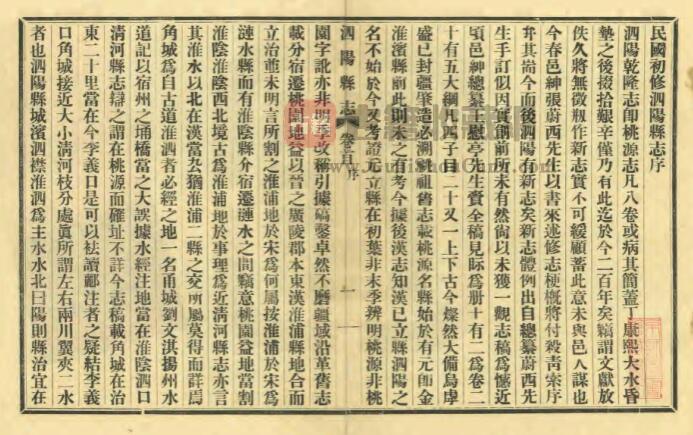 民國初修泗陽縣志序
泗陽乾隆志卽桃源志凡八卷或病其簡蓋丁康熙大水昏
墊之後掇拾艱辛僅乃有此迄於今二百年矣竊謂文獻放
佚久將無徵剏作新志實不可緩顧蓄此意未與邑人謀也
今春邑紳張蔚西先生以書來述修志梗概將付殺靑索序
弁其耑今而後泗陽有新志矣新志體例出自總纂蔚西先
生手訂似因實創前所未有然尙以未獲一觀志稿爲憾近
頃邑紳總纂王慰亭先生賫全稿見眎爲册十有二爲卷二
十有五大綱凡四子目二十又一上下古今燦然大備烏虖
盛已封疆肇造必溯厥祖舊志載桃源名縣始於有元卽金
淮濱縣前此則未之有考今據後漢志知漢已立縣泗陽之
名不始於今又考證元立縣在初葉非末季辨明桃源非桃
泗陽縣志 卷首 序 一
園字訛亦非明季改稱引據礭鑿卓然不磨疆域沿革舊志
載分宿遷桃園地益以晉之廣陵郡本東漢淮浦縣地合而
立治蓳未明言所割之淮浦地於宋爲何屬按淮浦於宋爲
漣水縣而有淮陰縣介宿遷漣水之間竊意桃園益地當割
淮陰淮陰西北境古爲淮浦地於事理爲近淸河縣志亦言
其淮水以北在漢當厹猶淮浦二縣之交所屬莫得而詳焉
角城爲自古道淮泗者必經之地一名甬城劉文淇揚州水
道記以宿州之埇橋當之大誤據水經注地當在淮陰泗口
淸河縣志辯之謂在桃源而確址不詳今志稿載角城在治
東二十里當在今李義口是可以袪讀酈注者之疑結李義
口角城接近大小淸河枝分處眞所謂左右兩川翼夾二水
者也泗陽縣城濱泗襟淮泗爲主水水北曰陽則縣治宜在